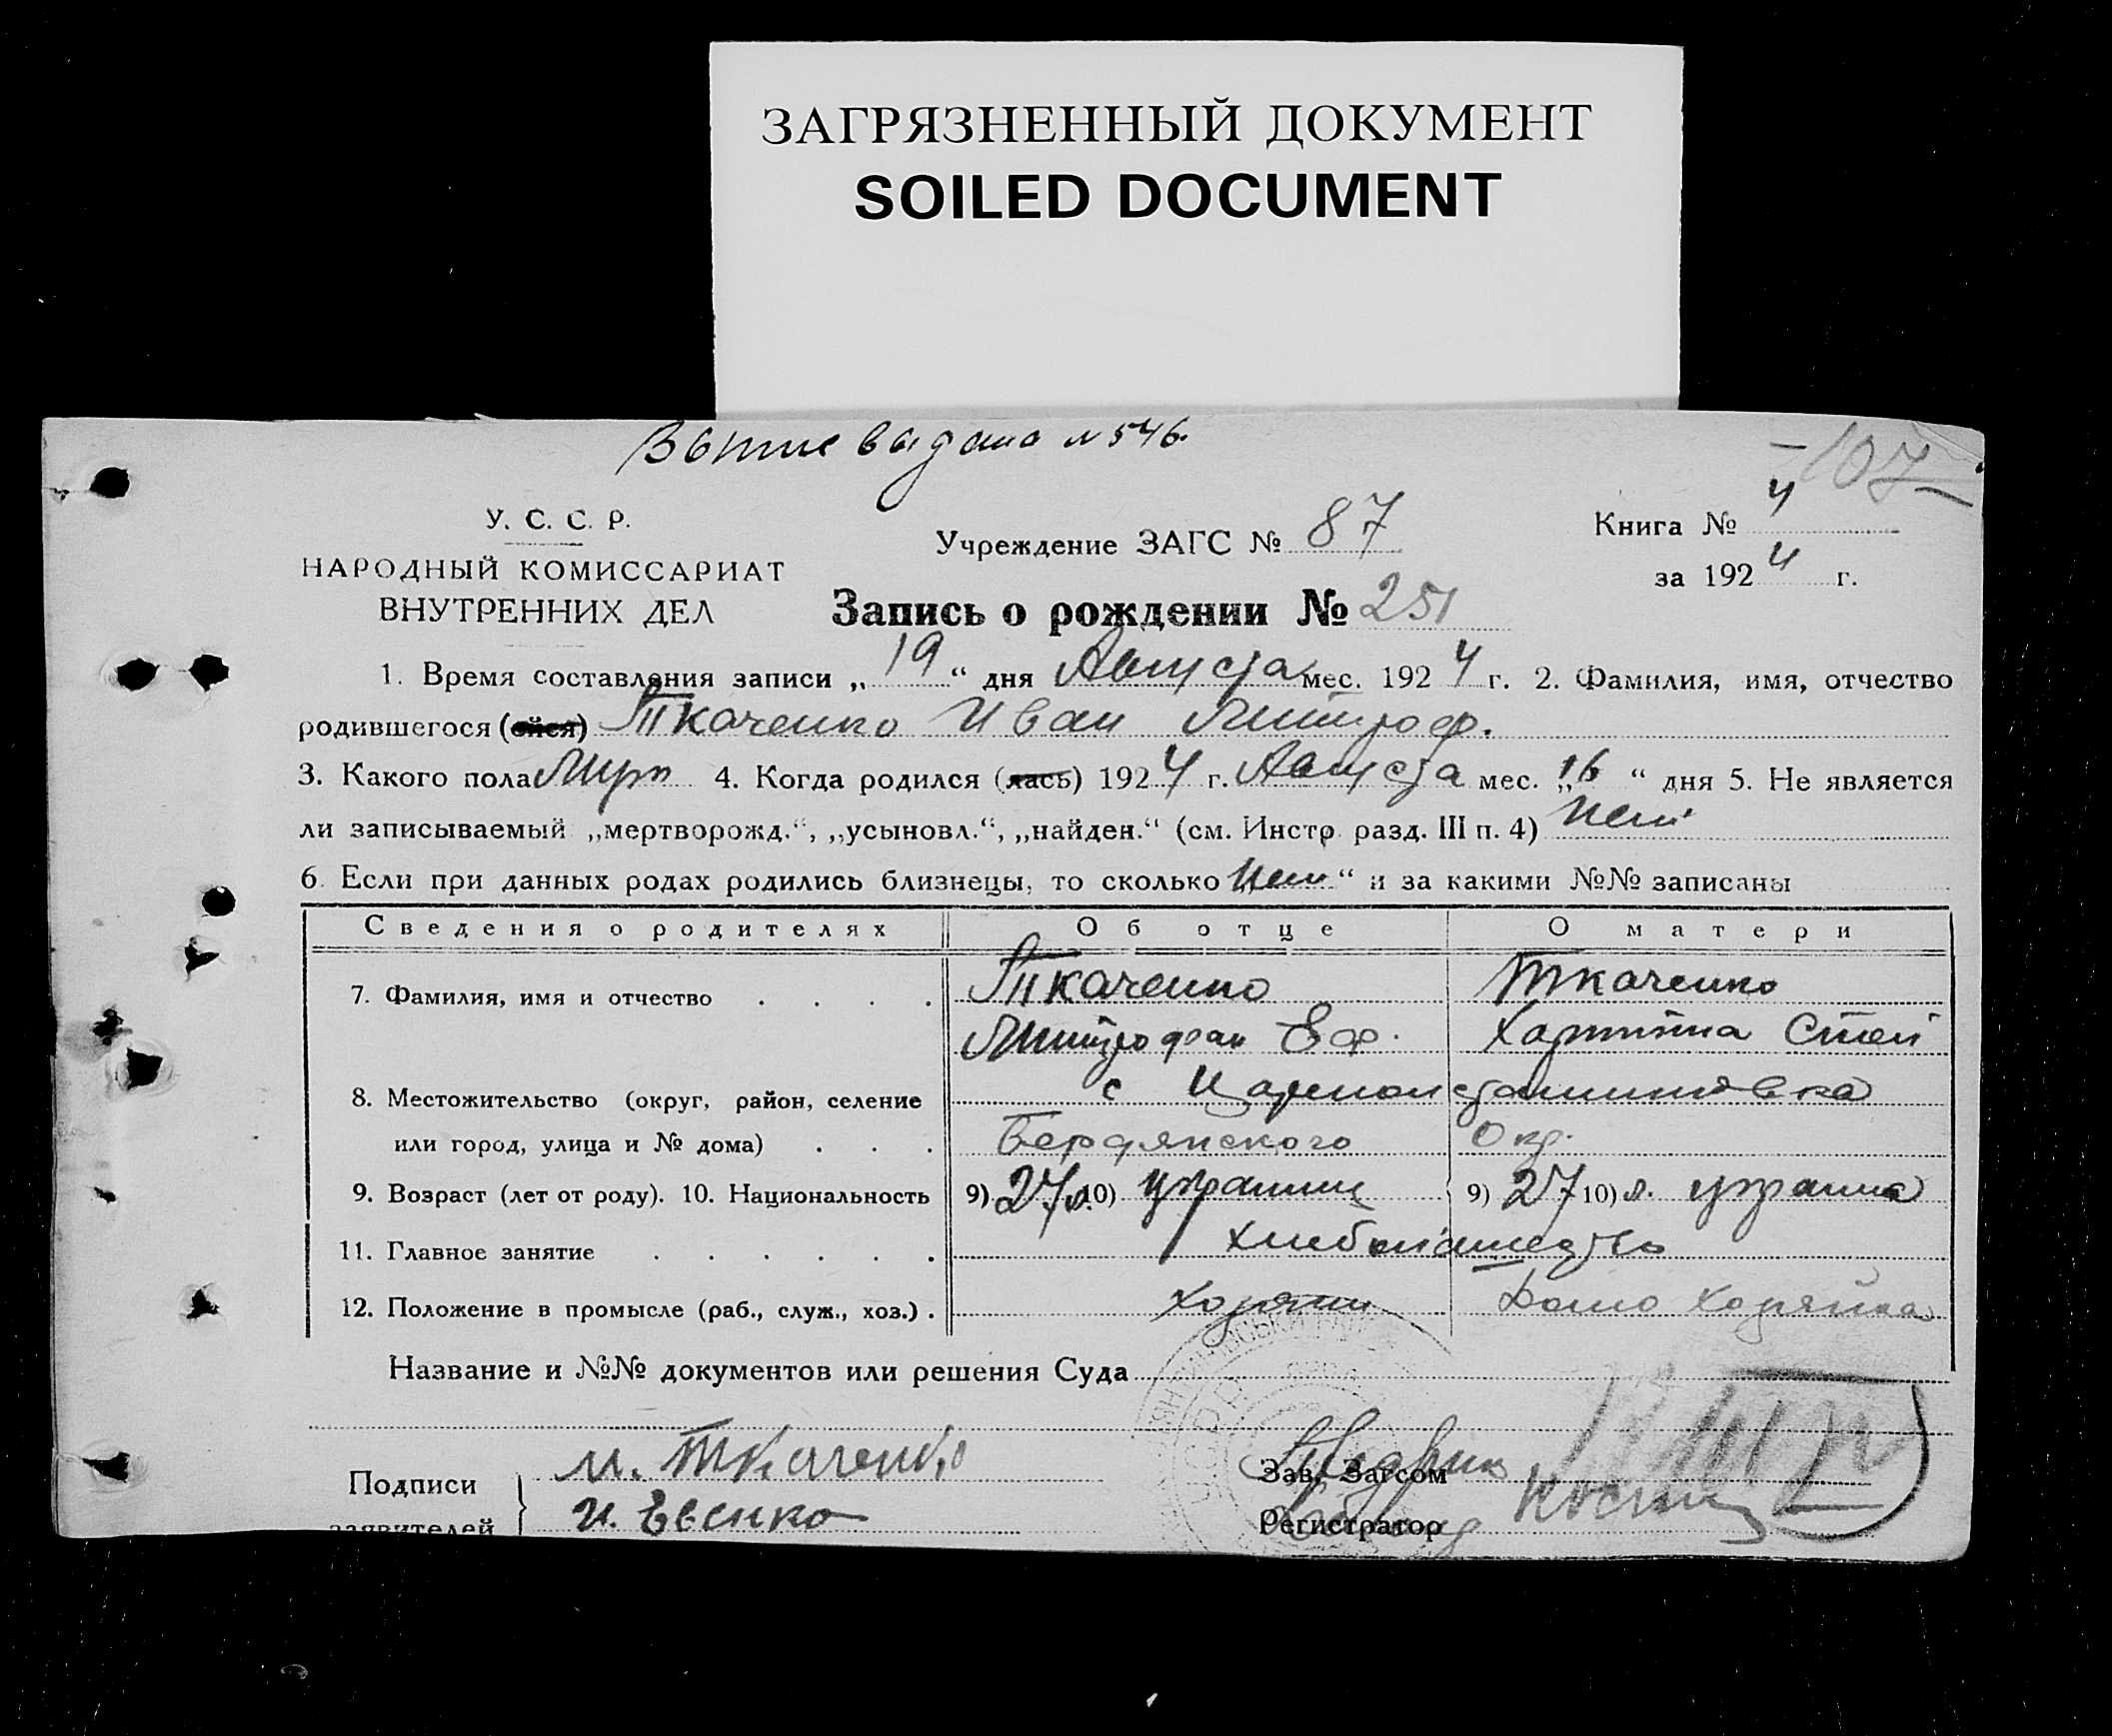 ЗАГРЯЗНЕННЫЙ ДОКУМЕНТ
SOILED DOCUMENT
выдана №546.
107
У. С. С. Р.
НАРОДНЫЙ КОМИССАРИАТ
ВНУТРЕННИХ ДЕЛ
Учреждение ЗАГС № 87
Книга № 4
за 1924 г.
Запись о рождении № 251
1. Время составления записи „19“ дня Августа мес. 1924 г. 2. Фамилия, имя, отчество
родившегося (ейся) Ткаченко Иван Митроф.
3. Какого пола Муж 4. Когда родился (лась) 1924 г. Августа мес. „16“ дня 5. Не является
ли записываемый „мертворожд.“, „усыновл.“, „найден.“ (см. Инстр. разд. III п. 4) Нет
6. Если при данных родах родились близнецы, то сколько Нет“ и за какими №№ записаны
Сведения о родителях Об отце О матери
7. Фамилия, имя и отчество . . . . Ткаченко Ткаченко
Митрофан Еф. Харитина Степ
8. Местожительство (округ, район, селение с Царекон
или город, улица и № дома) . . . Бердянского Окр.
9. Возраст (лет от роду). 10. Национальность 9) 27 л. 10) украинец 9) 27 л. 10) украинка
11. Главное занятие . . . . . .
12. Положение в промысле (раб., служ., хоз.) . Хозяин Домо хозяйка
Название и №№ документов или решения Суда
Подписи
заявителей
М. Ткаченко
И. Евенко
Зав. Загсом
Регистратор